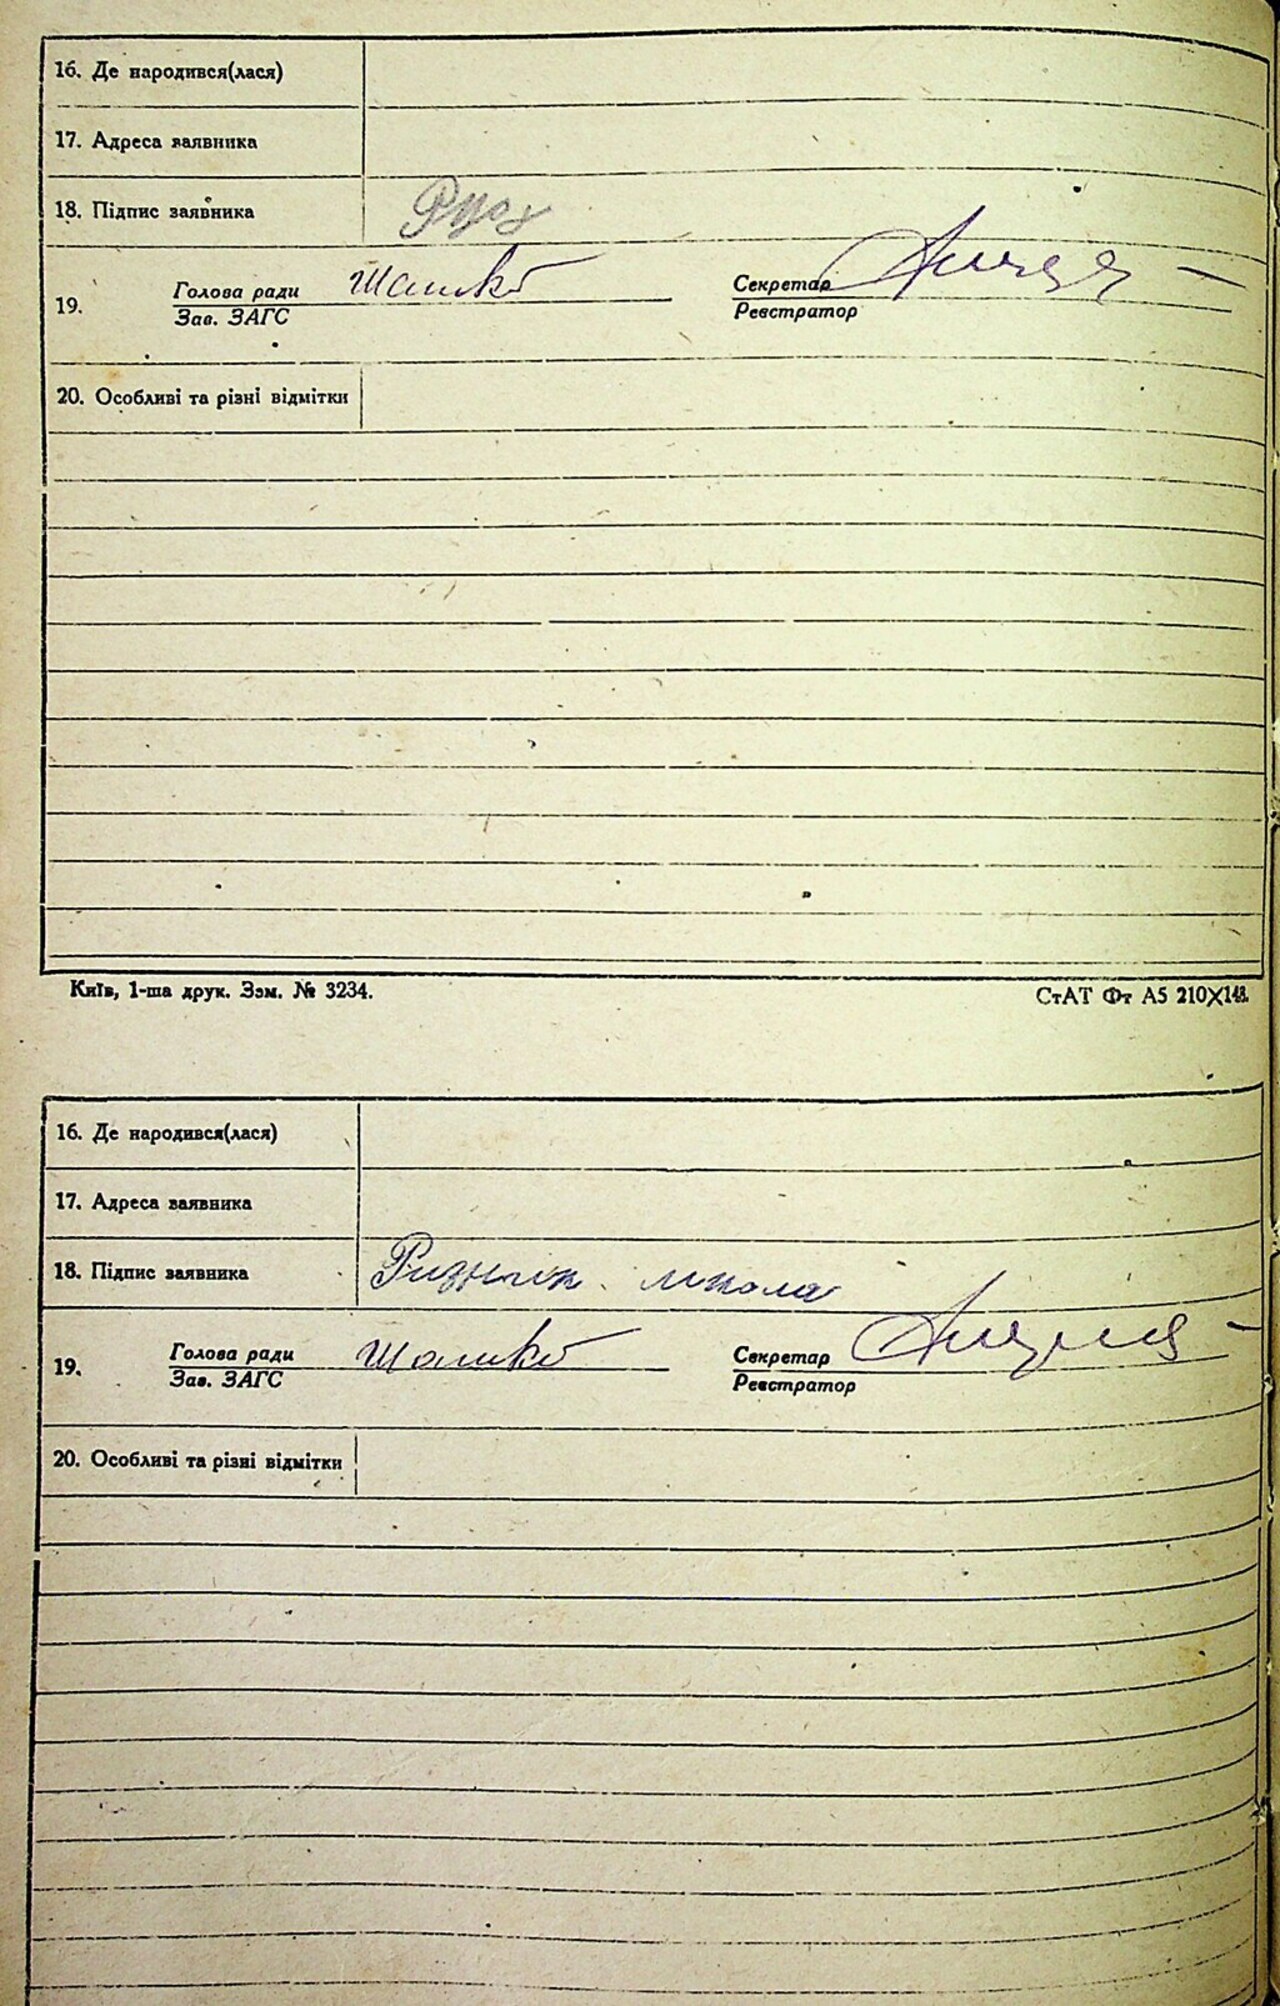 16. Де народився(лася)
17. Адреса заявника
18. Підпис заявника
19. Голова ради Секретар
Зав. ЗАГС Реєстратор
20. Особливі та різні відмітки
Київ, 1-ша друк. Зам. № 3234. СтАТ Фт А5 210X148.
16. Де народився(лася)
17. Адреса заявника
18. Підпис заявника Ризнык микола
19. Голова ради Секретар
Зав. ЗАГС Реєстратор
20. Особливі та різні відмітки